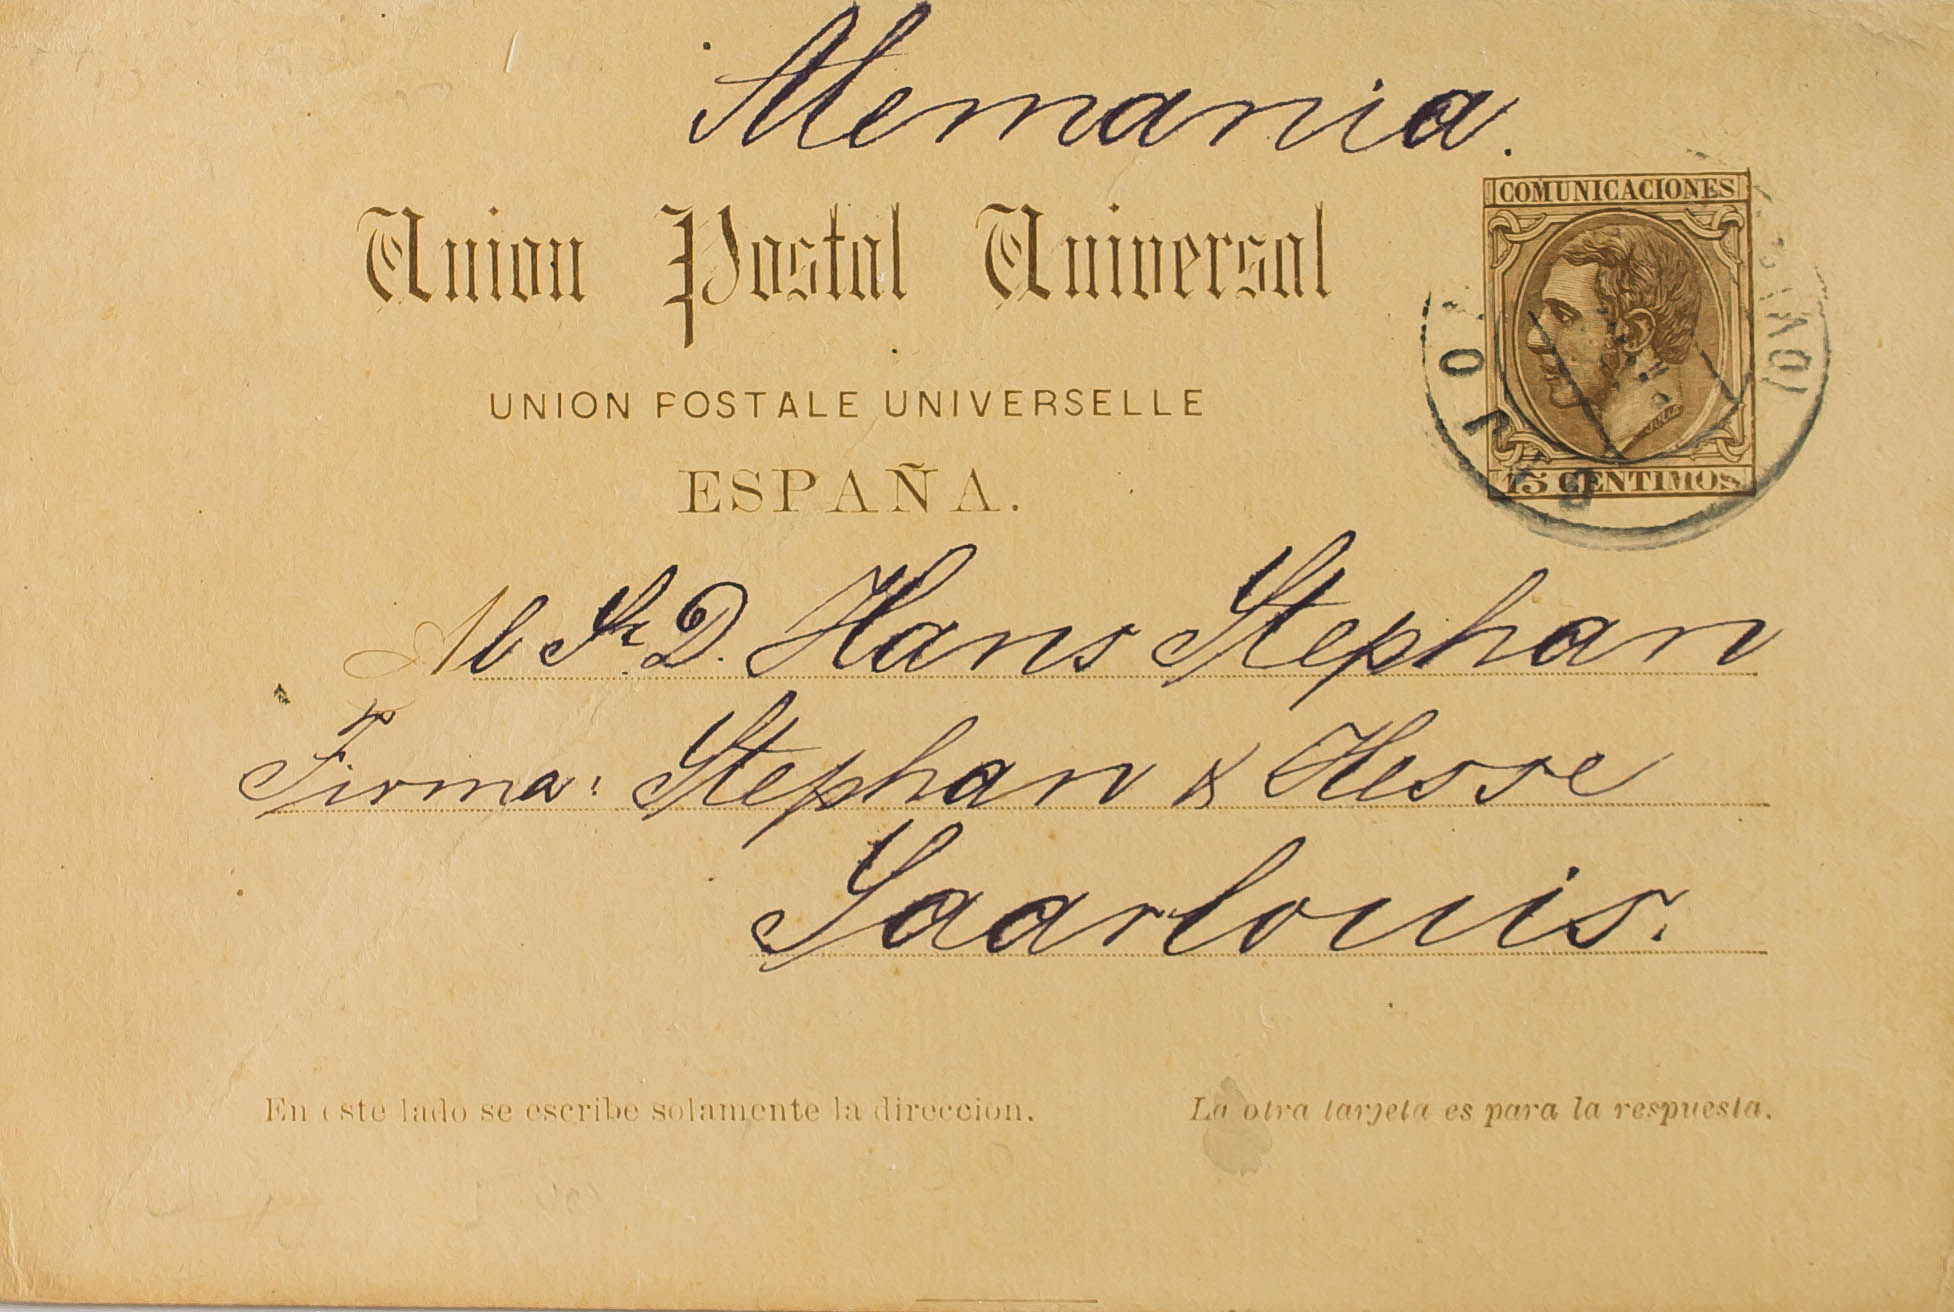 Alemania.
COMUNICACIONES
Union Postal Universal
UNION POSTALE UNIVERSELLE
ESPAÑA.
15 CENTIMOS
Al Sr. D. Hans Stephan
Firma: Stephan & Hesse
Saarlouis.
En este lado se escribe solamente la direccion.
La otra tarjeta es para la respuesta.